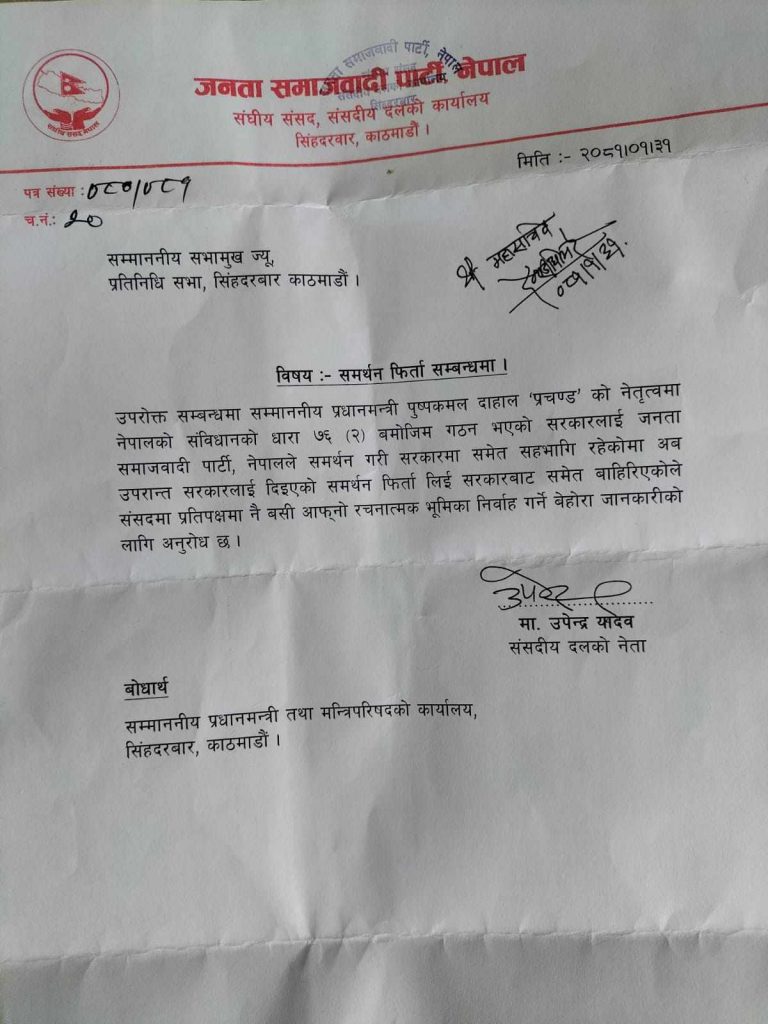 जनता समाजवादी पार्टी, नेपाल
संघीय संसद, संसदीय दलको कार्यालय
सिंहदरबार, काठमाडौं ।
संघीय संसद नेपाल
जनता समाजवादी पार्टी, नेपाल
सिंहदरबार
मिति :- २०८१।०१।३१
पत्र संख्या : ०८०/०८१
च.नं.: २०
सम्माननीय सभामुख ज्यू,
प्रतिनिधि सभा, सिंहदरबार काठमाडौं ।
श्री महासचिव
०८१।१।३१
विषय :- समर्थन फिर्ता सम्बन्धमा ।
उपरोक्त सम्बन्धमा सम्माननीय प्रधानमन्त्री पुष्पकमल दाहाल ‘प्रचण्ड’ को नेतृत्वमा
नेपालको संविधानको धारा ७६ (२) बमोजिम गठन भएको सरकारलाई जनता
समाजवादी पार्टी, नेपालले समर्थन गरी सरकारमा समेत सहभागि रहेकोमा अब
उपरान्त सरकारलाई दिइएको समर्थन फिर्ता लिई सरकारबाट समेत बाहिरिएकोले
संसदमा प्रतिपक्षमा नै बसी आफ्नो रचनात्मक भूमिका निर्वाह गर्ने बेहोरा जानकारीको
लागि अनुरोध छ ।
मा. उपेन्द्र यादेव
संसदीय दलको नेता
बोधार्थ
सम्माननीय प्रधानमन्त्री तथा मन्त्रिपरिषदको कार्यालय,
सिंहदरबार, काठमाडौं ।